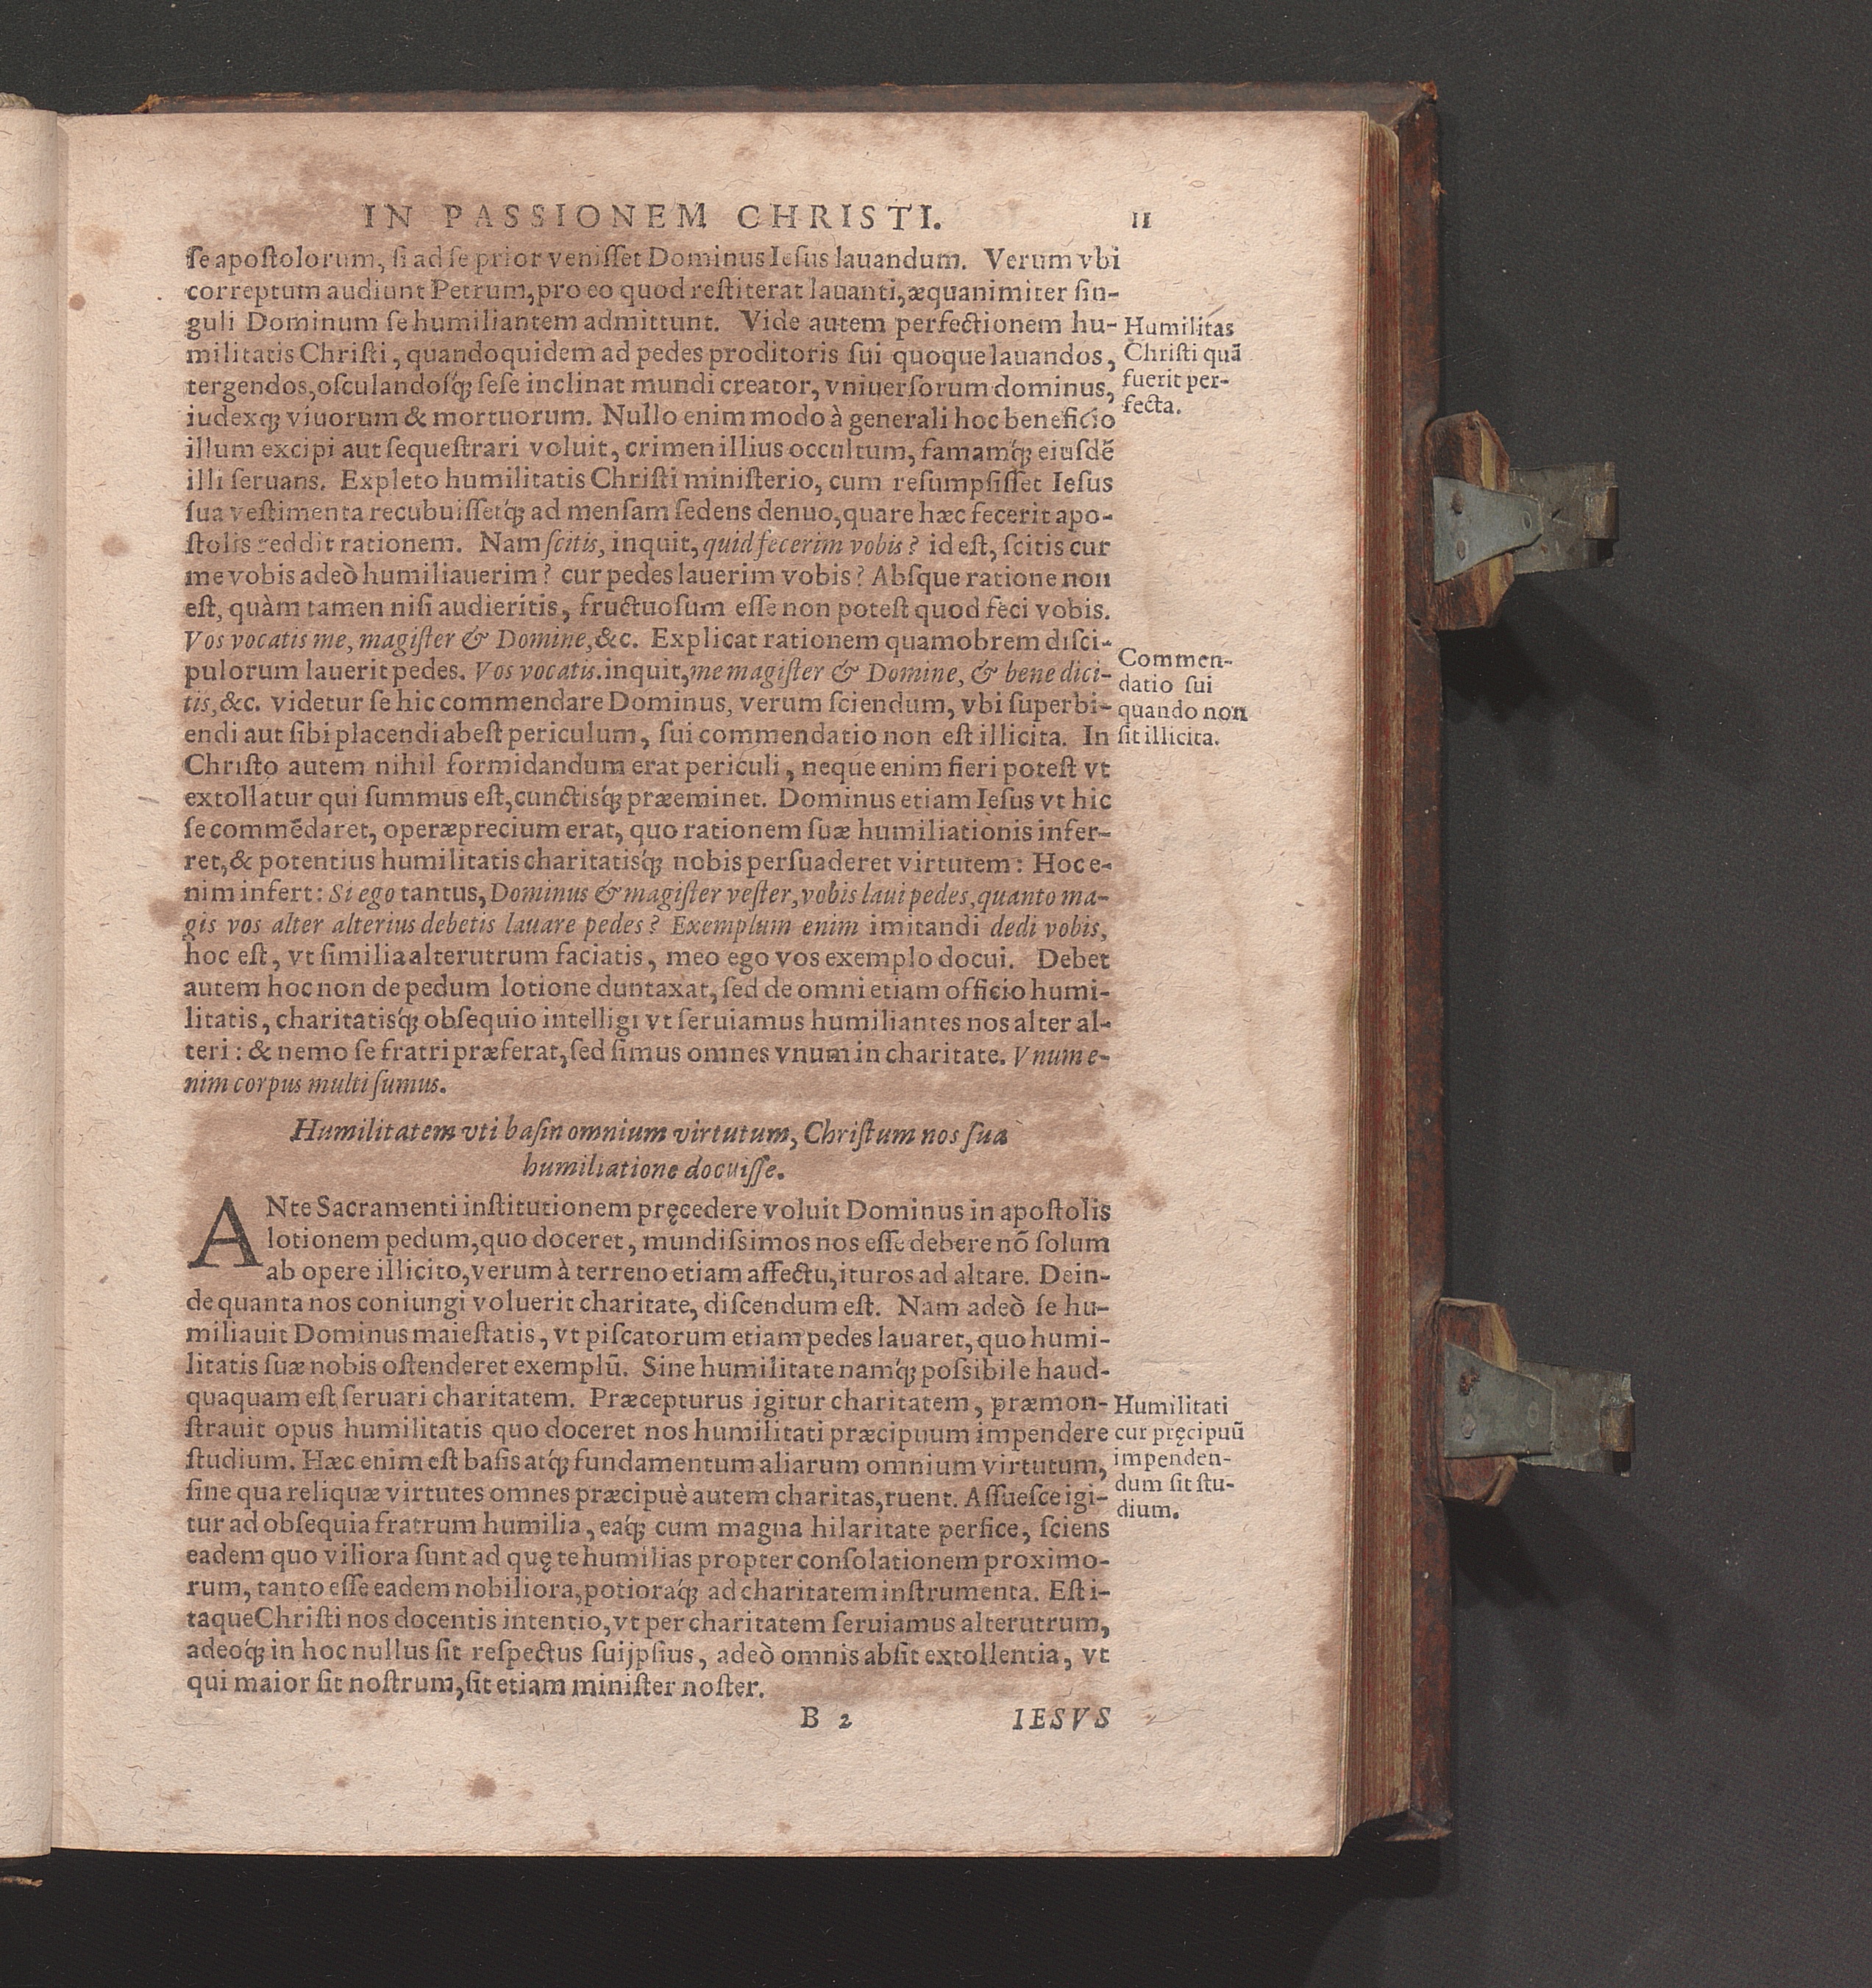 IN PASSIONEM CHRISTI. 11
ſe apoſtolorum, ſi ad ſe prior veniſſet Dominus Ieſus lauandum. Verum vbi
correptum audiunt Petrum, pro eo quod reſtiterat lauanti, æquanimiter ſin-
guli Dominum ſe humiliantem admittunt. Vide autem perfectionem hu-
militatis Chriſti, quandoquidem ad pedes proditoris ſui quoque lauandos,
tergendos, oſculandoſq́; ſeſe inclinat mundi creator, vniuerſorum dominus,
iudexq; viuorum & mortuorum. Nullo enim modo à generali hoc beneficio
illum excipi aut ſequeſtrari voluit, crimen illius occultum, famamq́; eiuſdẽ
illi ſeruans. Expleto humilitatis Chriſti miniſterio, cum reſumpſiſſet Ieſus
ſua veſtimenta recubuiſſetq́; ad menſam ſedens denuo, quare hæc fecerit apo-
ſtolis reddit rationem. Nam ſcitis, inquit, quid fecerim vobis? id eſt, ſcitis cur
me vobis adeò humiliauerim? cur pedes lauerim vobis? Abſque ratione non
eſt, quàm tamen niſi audieritis, fructuoſum eſſe non poteſt quod feci vobis.
Vos vocatis me, magiſter & Domine, &c. Explicat rationem quamobrem diſci-
pulorum lauerit pedes. Vos vocatis. inquit, me magiſter & Domine, & bene dici-
tis, &c. videtur ſe hic commendare Dominus, verum ſciendum, vbi ſuperbi-
endi aut ſibi placendi abeſt periculum, ſui commendatio non eſt illicita. In
Chriſto autem nihil formidandum erat periculi, neque enim fieri poteſt vt
extollatur qui ſummus eſt, cunctiſq́; præeminet. Dominus etiam Ieſus vt hic
ſe commẽdaret, operæprecium erat, quo rationem ſuæ humiliationis infer-
ret, & potentius humilitatis charitatiſq́; nobis perſuaderet virtutem: Hoc e-
nim infert: Si ego tantus, Dominus & magiſter veſter, vobis laui pedes, quanto ma-
gis vos alter alterius debetis lauare pedes? Exemplum enim imitandi dedi vobis,
hoc eſt, vt ſimilia alterutrum faciatis, meo ego vos exemplo docui. Debet
autem hoc non de pedum lotione duntaxat, ſed de omni etiam officio humi-
litatis, charitatiſq́; obſequio intelligi vt ſeruiamus humiliantes nos alter al-
teri: & nemo ſe fratri præferat, ſed ſimus omnes vnum in charitate. Vnum e-
nim corpus multi ſumus.
Humilitas
Chriſti quã
fuerit per-
fecta.
Commen-
datio ſui
quando non
ſit illicita.
Humilitatem vti baſin omnium virtutum, Chriſtum nos ſua
humiliatione docuiſſe.
ANte Sacramenti inſtitutionem pręcedere voluit Dominus in apoſtolis
lotionem pedum, quo doceret, mundiſsimos nos eſſe debere nõ ſolum
ab opere illicito, verum à terreno etiam affectu, ituros ad altare. Dein-
de quanta nos coniungi voluerit charitate, diſcendum eſt. Nam adeò ſe hu-
miliauit Dominus maieſtatis, vt piſcatorum etiam pedes lauaret, quo humi-
litatis ſuæ nobis oſtenderet exemplũ. Sine humilitate namq́; poſsibile haud-
quaquam eſt ſeruari charitatem. Præcepturus igitur charitatem, præmon-
ſtrauit opus humilitatis quo doceret nos humilitati præcipuum impendere
ſtudium. Hæc enim eſt baſis atq́; fundamentum aliarum omnium virtutum,
ſine qua reliquæ virtutes omnes præcipuè autem charitas, ruent. Aſſueſce igi-
tur ad obſequia fratrum humilia, eaq́; cum magna hilaritate perfice, ſciens
eadem quo viliora ſunt ad quę te humilias propter conſolationem proximo-
rum, tanto eſſe eadem nobiliora, potioraq́; ad charitatem inſtrumenta. Eſt i-
taque Chriſti nos docentis intentio, vt per charitatem ſeruiamus alterutrum,
adeoq́; in hoc nullus ſit reſpectus ſuijpſius, adeò omnis abſit extollentia, vt
qui maior ſit noſtrum, ſit etiam miniſter noſter.
Humilitati
cur pręcipuũ
impenden-
dum ſit ſtu-
dium.
B 2 IESVS